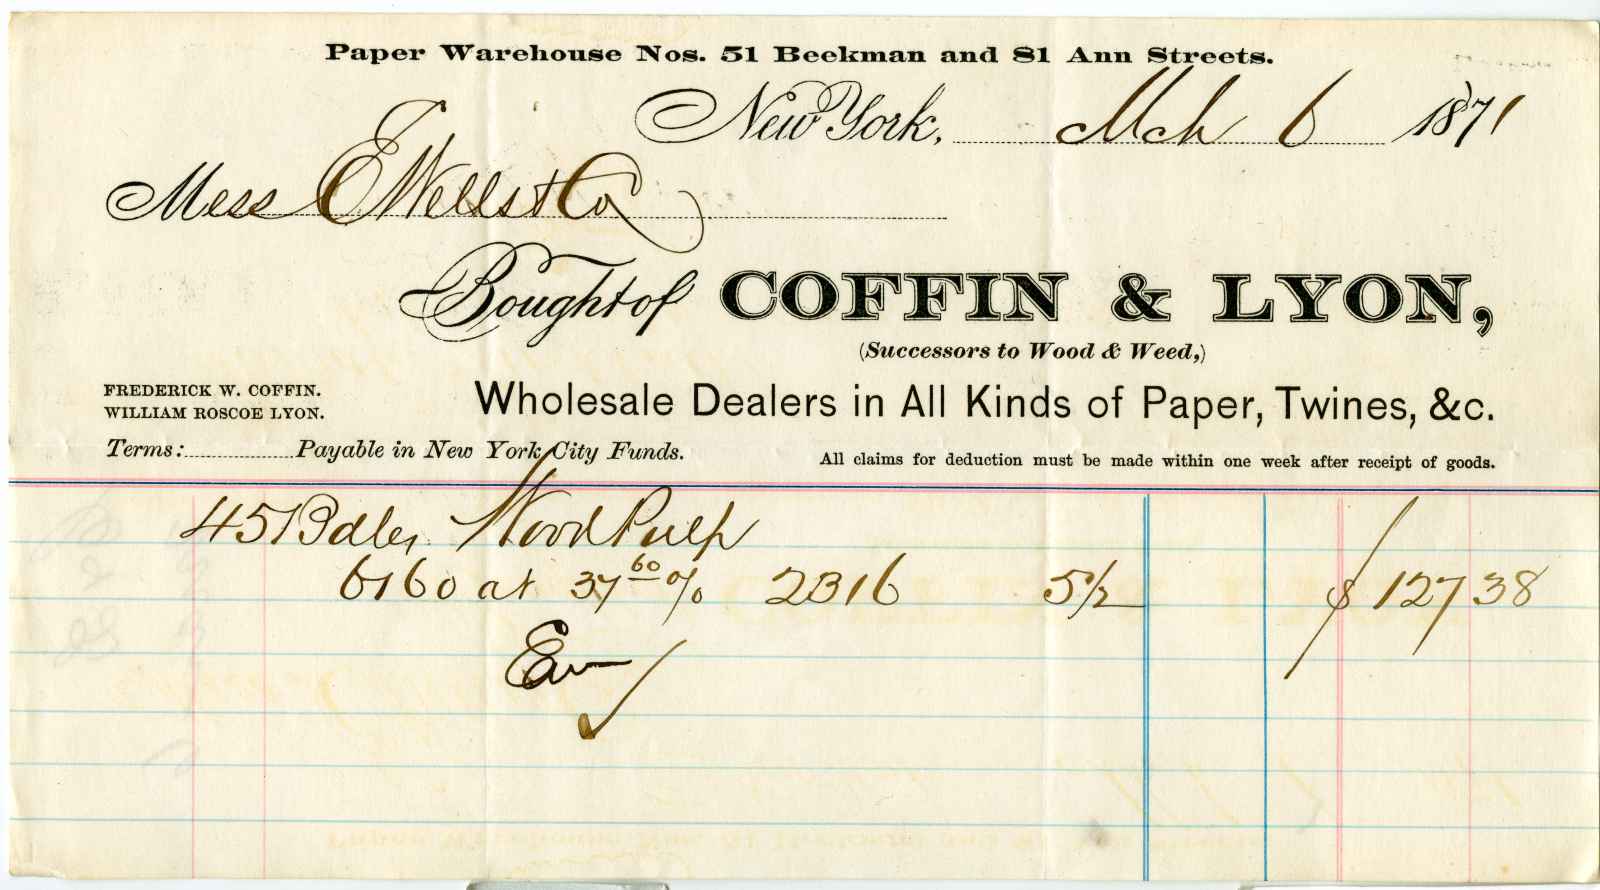 Paper Warehouse Nos. 51 Beekman and 81 Ann Streets.
New York, Mch 6 1871
Mess E Wells & Co
Bought of COFFIN & LYON,
(Successors to Wood & Weed,)
FREDERICK W. COFFIN.
WILLIAM ROSCOE LYON.
Wholesale Dealers in All Kinds of Paper, Twines, &c.
Terms: Payable in New York City Funds.
All claims for deduction must be made within one week after receipt of goods.
45 Bales Wood Pulp
6160 at 37 60 % 2316 5 1/2 $ 127 38